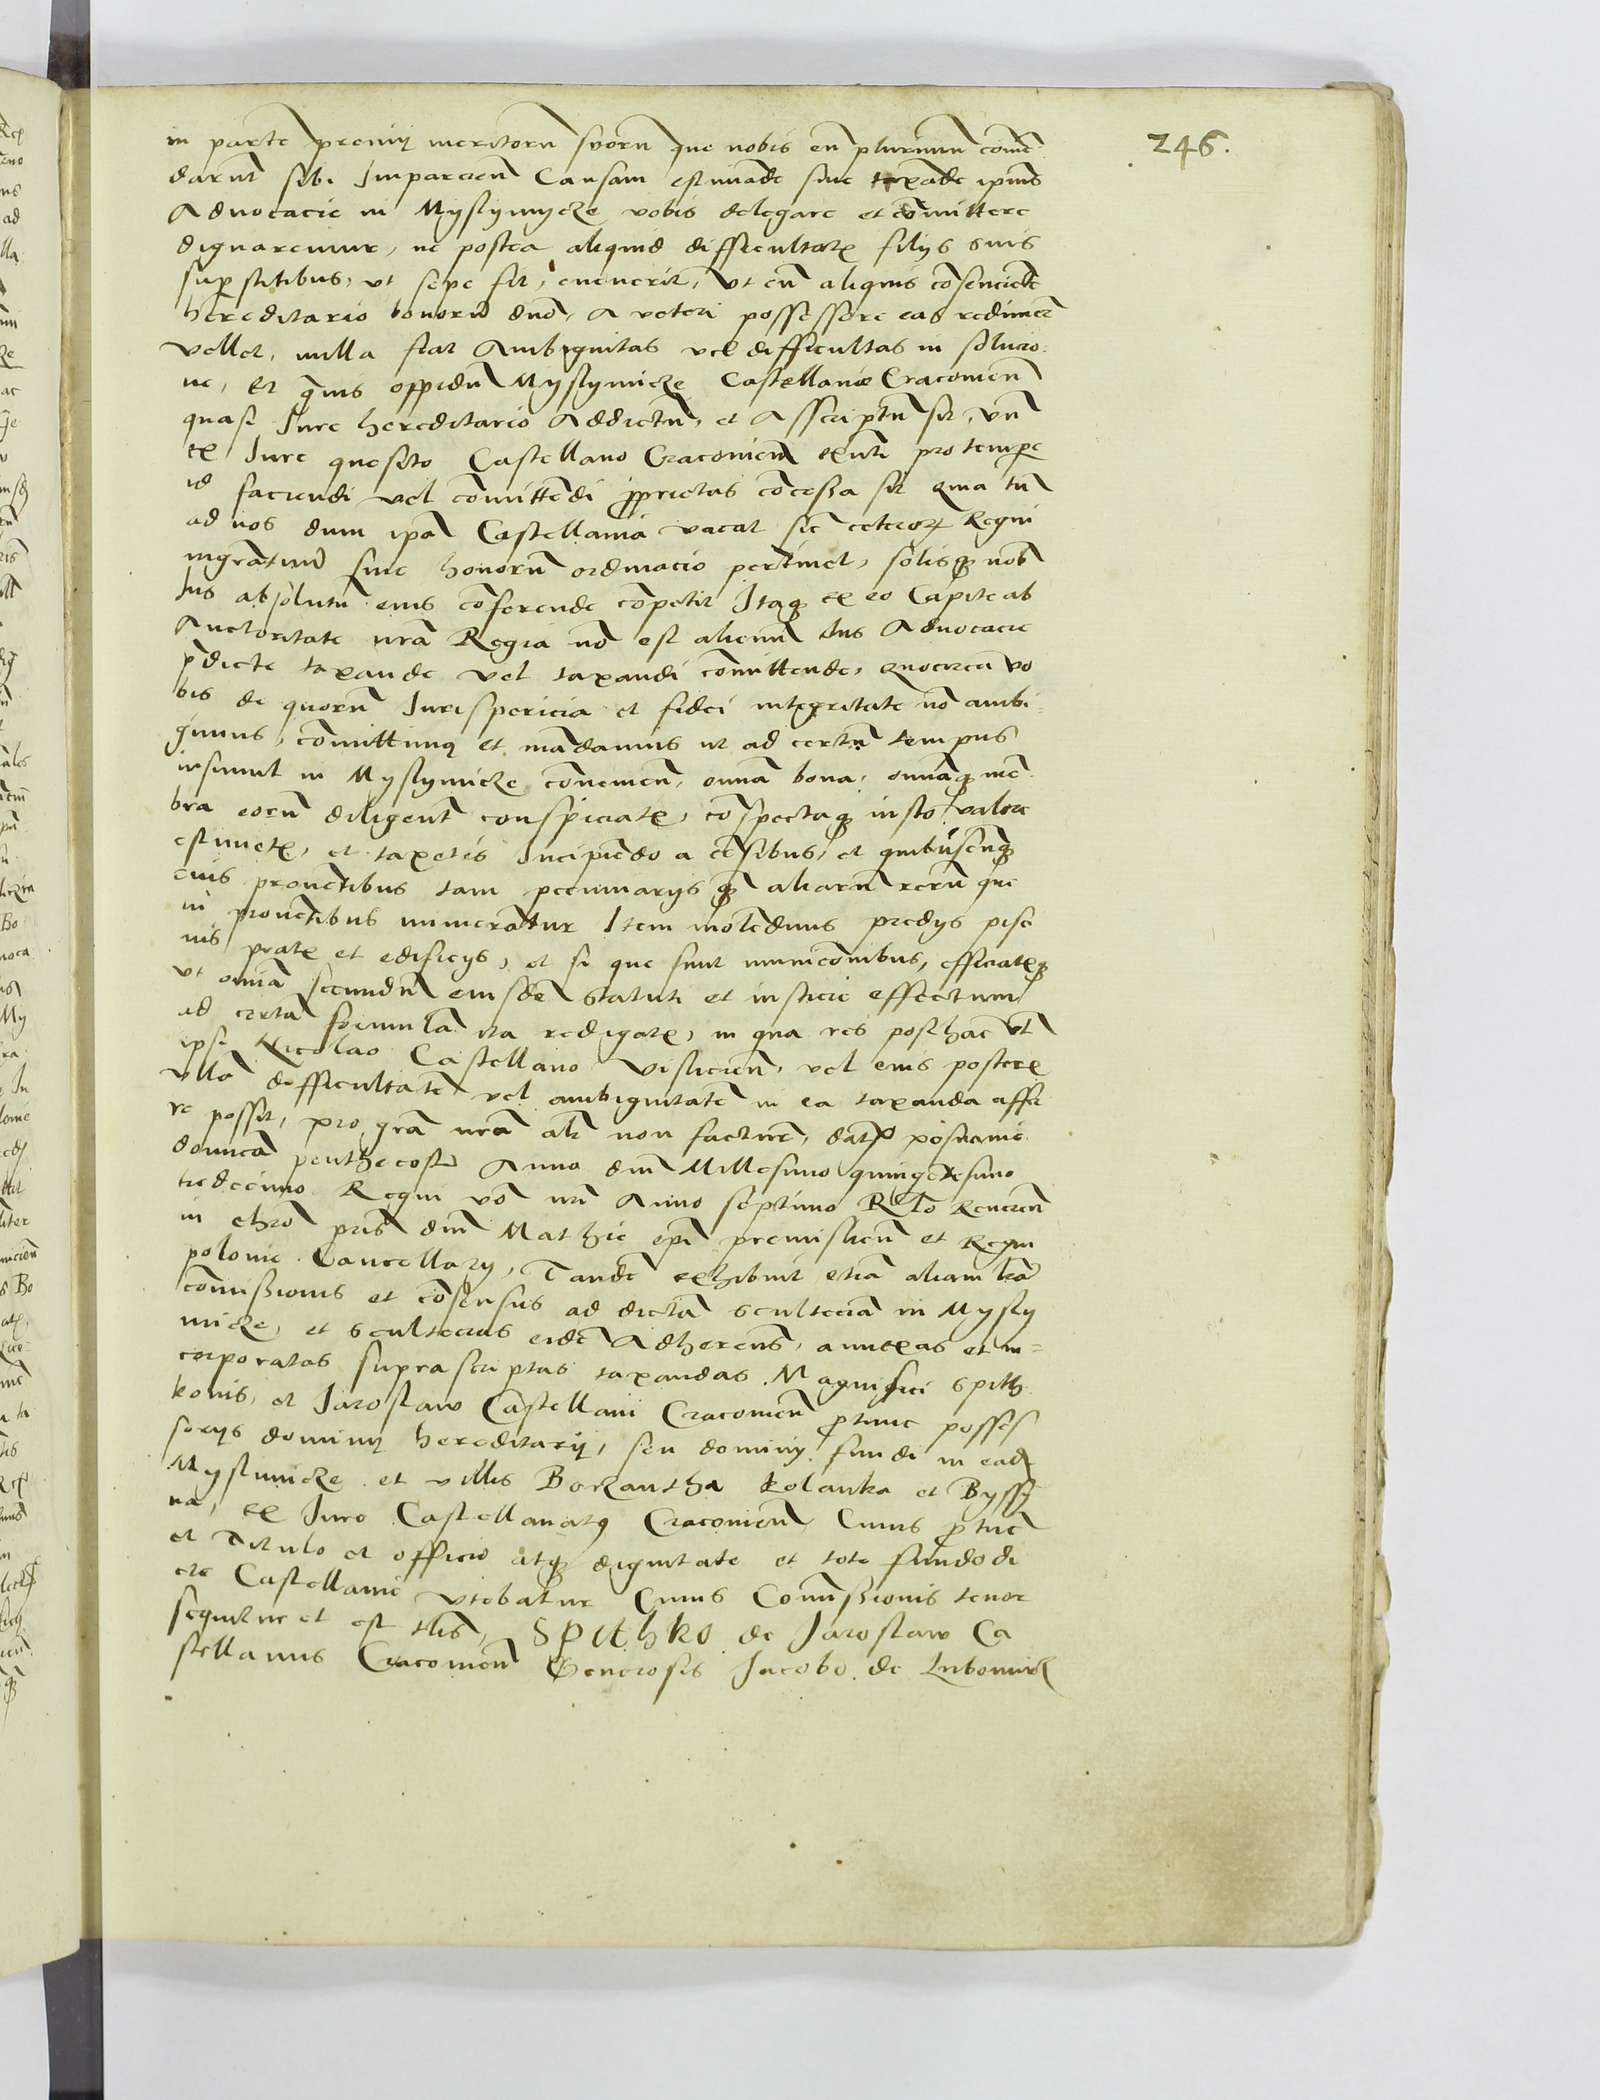 246.
in parte premij meritoru suoru que nobis eu plurimu come
darut sibi Imparcien Causam estimade siue taxade ipius
Aduocacie in Myslymycze vobis delegare et comittere
dignaremur, ne postea aliquid difficultatis filijs suis
superstitibus, vt sepe fit, euenerit, vt cu aliquis consenciete
hereditario bonoru duo, a veteri possessore eas redimere
vellet, nulla fiat Ambiguitas vel difficultas in solucio
ne, Et quis oppidu Myslymicze Castellanie Cracouien
quasi Iure hereditario Addictu, et Asscriptu sit, vn
ex Iure quesito Castellano Cracouien exnti pro tempore
id faciendi vel comittedi proprietas concessa sit quia tn
ad nos dum ipa Castellania vacat sic ceteroru Regni
magratuu siue honoru ordinacio pertinet, solisq nob
Ius absolutu eius conferende competit Itaq ex eo Capite ab
Auctoritate nra Regia no est alienu Ius Aduocacie
pdicte taxande vel taxandi comittende, quocirca vo
bis de quoru Iurispericia et fidei integritate no ambi
gimus, comittimus et madamus ut ad certu tempus
insimul in Myslymicze conuenien, omnia bona, omniaq me
bra eoru diligent conspiciatis, conspectaq iusto valore
estimetis, et taxetis Incipiendo a censibus, et quibuscuq
eius prouetibus tam pecuniarijs q aliaru reru que
in prouetibus numerantur Item molendinis predijs pisci
nis pratis et edificijs, et si que sunt municonibus, efficiatisq
vt omnia secundu eiusde Statuti et iusticie effectum
ad certa formula ita redigatis, in qua res posthac vt
ipse Nicolao Castellano Visliciem, vel eius posteris
vlla difficultate vel ambiguitate in ea taxanda affer
re possit, pro gra nra alr non facturi, dat posnanie
dominca penthecost Anno dni Millesimo quingetesimo
tredecimo Regni vo nri Anno septimo Relo Reueren
in chro pris dni Mathie epi premislien et Regni
polonie Cancellary, Tande exhibuit etia aliam lra
comissionis et consensus ad dicta scultecia in Mysly
micze, et scultecias eide Adherens, annexas et in=
corporatas suprascriptas taxandas Magnifici spith
konis, et Iaroslaw Castellani Cracouien protunc posses
sorijs dominij hereditarij, seu dominij fundi in eade
Myslimicze et villis Borzantha Polanka et Byssy
na, ex Iure Castellanatus Cracouien Cuius protuc
et Titulo et officio atq dignitate et toto fundo di
cte Castellanie vtebatur Cuius Comissionis tenor
sequitur et est tlis, Spithko de Iaroslaw Ca
stellanus Cracouien Generosis Iacobo de Lubomirz